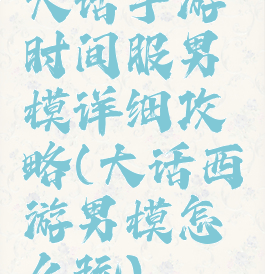 大话手游
时间服男
模详细攻
略(大话西
游男模怎
么玩)